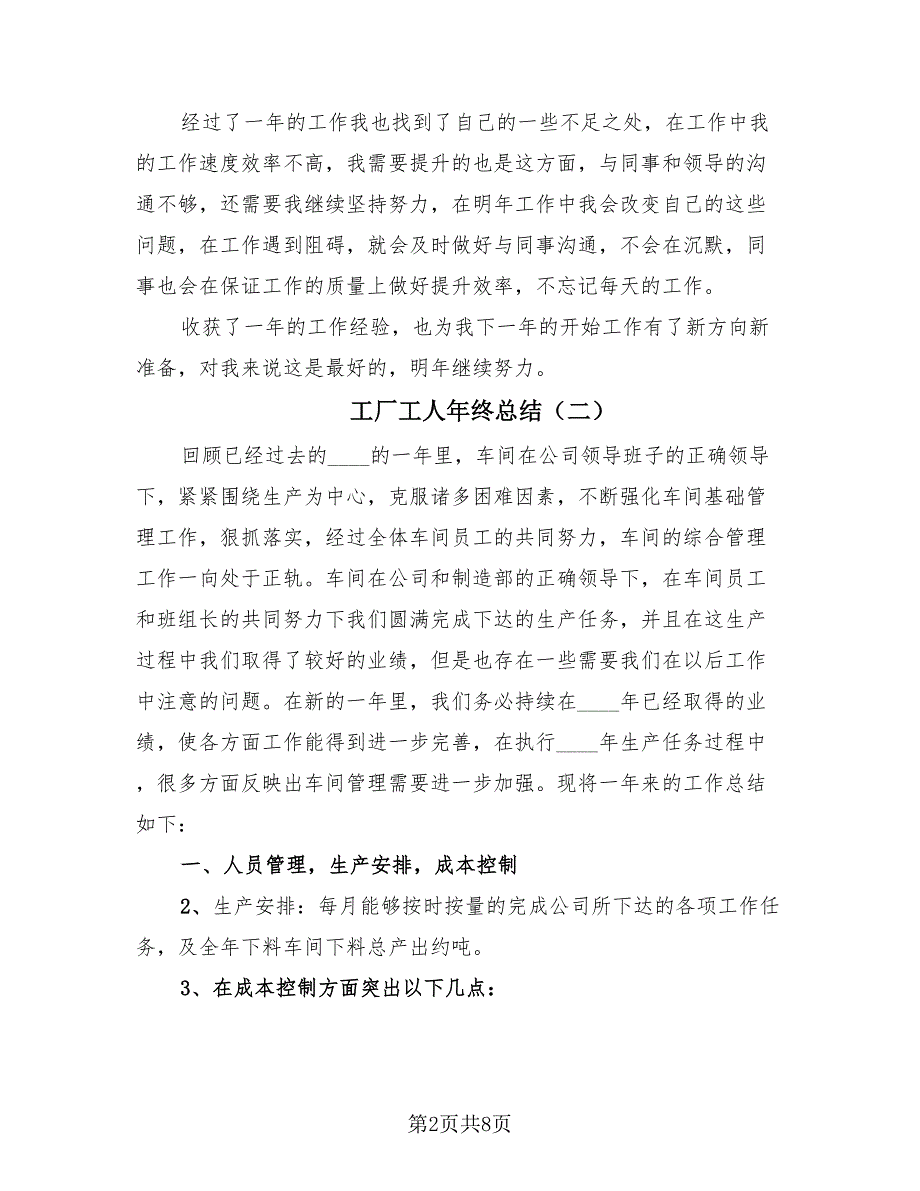 经过了一年的工作我也找到了自己的一些不足之处，在工作中我
的工作速度效率不高，我需要提升的也是这方面，与同事和领导的沟
通不够，还需要我继续坚持努力，在明年工作中我会改变自己的这些
问题，在工作遇到阻碍，就会及时做好与同事沟通，不会在沉默，同
事也会在保证工作的质量上做好提升效率，不忘记每天的工作。
收获了一年的工作经验，也为我下一年的开始工作有了新方向新
准备，对我来说这是最好的，明年继续努力。
工厂工人年终总结（二）
回顾已经过去的____的一年里，车间在公司领导班子的正确领导
下，紧紧围绕生产为中心，克服诸多困难因素，不断强化车间基础管
理工作，狠抓落实，经过全体车间员工的共同努力，车间的综合管理
工作一向处于正轨。车间在公司和制造部的正确领导下，在车间员工
和班组长的共同努力下我们圆满完成下达的生产任务，并且在这生产
过程中我们取得了较好的业绩，但是也存在一些需要我们在以后工作
中注意的问题。在新的一年里，我们务必持续在____年已经取得的业
绩，使各方面工作能得到进一步完善，在执行____年生产任务过程中
，很多方面反映出车间管理需要进一步加强。现将一年来的工作总结
如下：
一、人员管理，生产安排，成本控制
2、生产安排：每月能够按时按量的完成公司所下达的各项工作任
务，及全年下料车间下料总产出约吨。
3、在成本控制方面突出以下几点：
第2页共8页